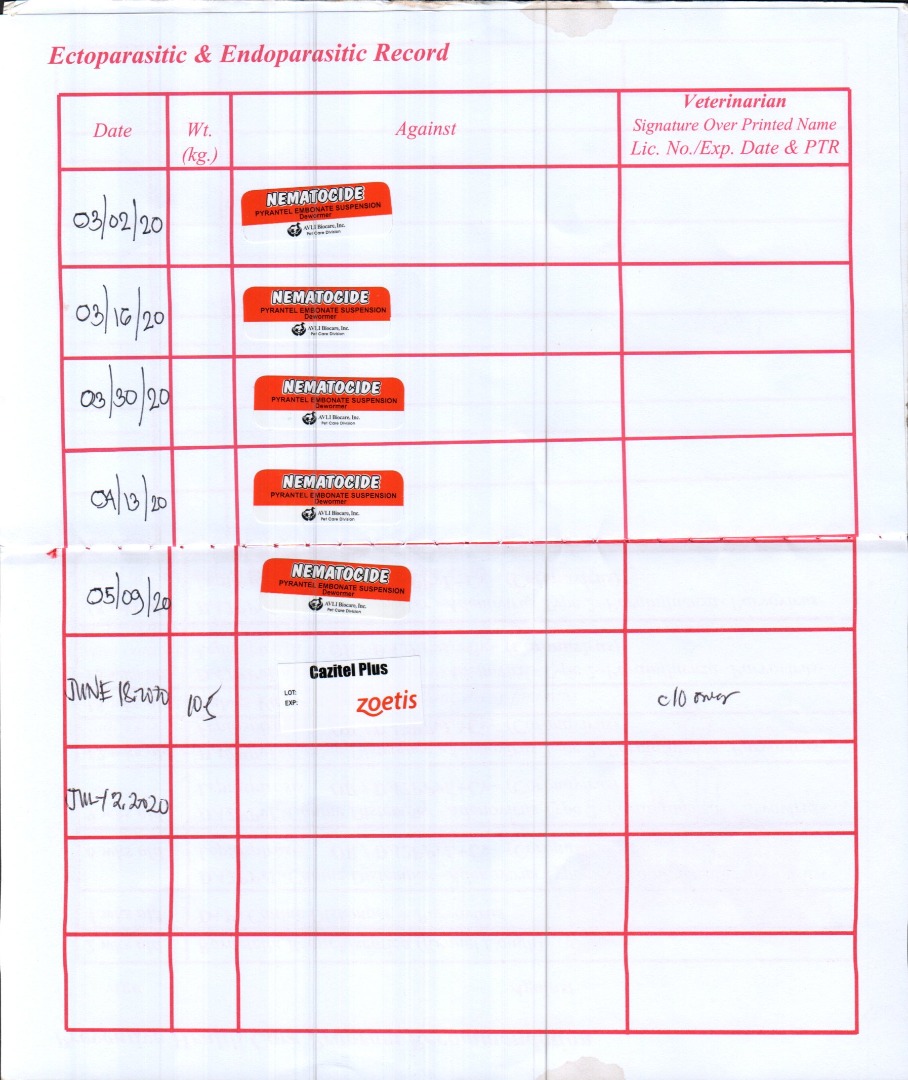 Ectoparasitic & Endoparasitic Record
Date
Wt.
(kg.)
Against
Veterinarian
Signature Over Printed Name
Lic. No./Exp. Date & PTR
03/02/20
NEMATOCIDE
PYRANTEL EMBONATE SUSPENSION
Dewormer
AVLI Biocare, Inc.
Pet Care Division
03/16/20
NEMATOCIDE
PYRANTEL EMBONATE SUSPENSION
Dewormer
AVLI Biocare, Inc.
Pet Care Division
03/30/20
NEMATOCIDE
PYRANTEL EMBONATE SUSPENSION
Dewormer
AVLI Biocare, Inc.
Pet Care Division
04/13/20
NEMATOCIDE
PYRANTEL EMBONATE SUSPENSION
Dewormer
AVLI Biocare, Inc.
Pet Care Division
05/09/20
NEMATOCIDE
PYRANTEL EMBONATE SUSPENSION
Dewormer
AVLI Biocare, Inc.
Pet Care Division
JUNE 18.2020
Cazitel Plus
LOT:
EXP:
zoetis
c/o
JULY 2.2020